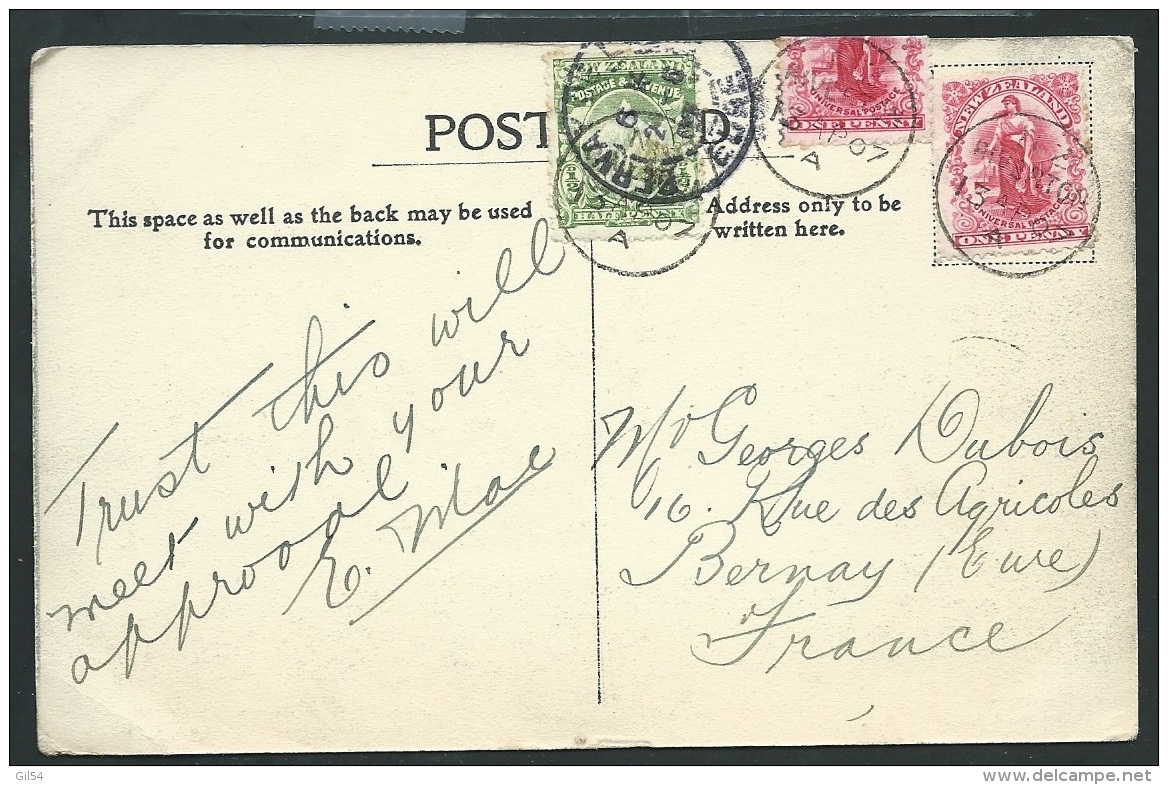 POST D
NEW ZEALAND
POSTAGE & REVENUE
HALFPENNY
UNIVERSAL POSTAGE
ONE PENNY
NEW ZEALAND
UNIVERSAL POSTAGE
ONE PENNY
BERNAY
EURE
A
AP 07
A
13
This space as well as the back may be used
for communications.
Address only to be
written here.
Trust this will
meet with your
approval
E. Mac
Mr Georges Dubois
16. Rue des Agricoles
Bernay (Eure)
France
Gil54
delcampe.net